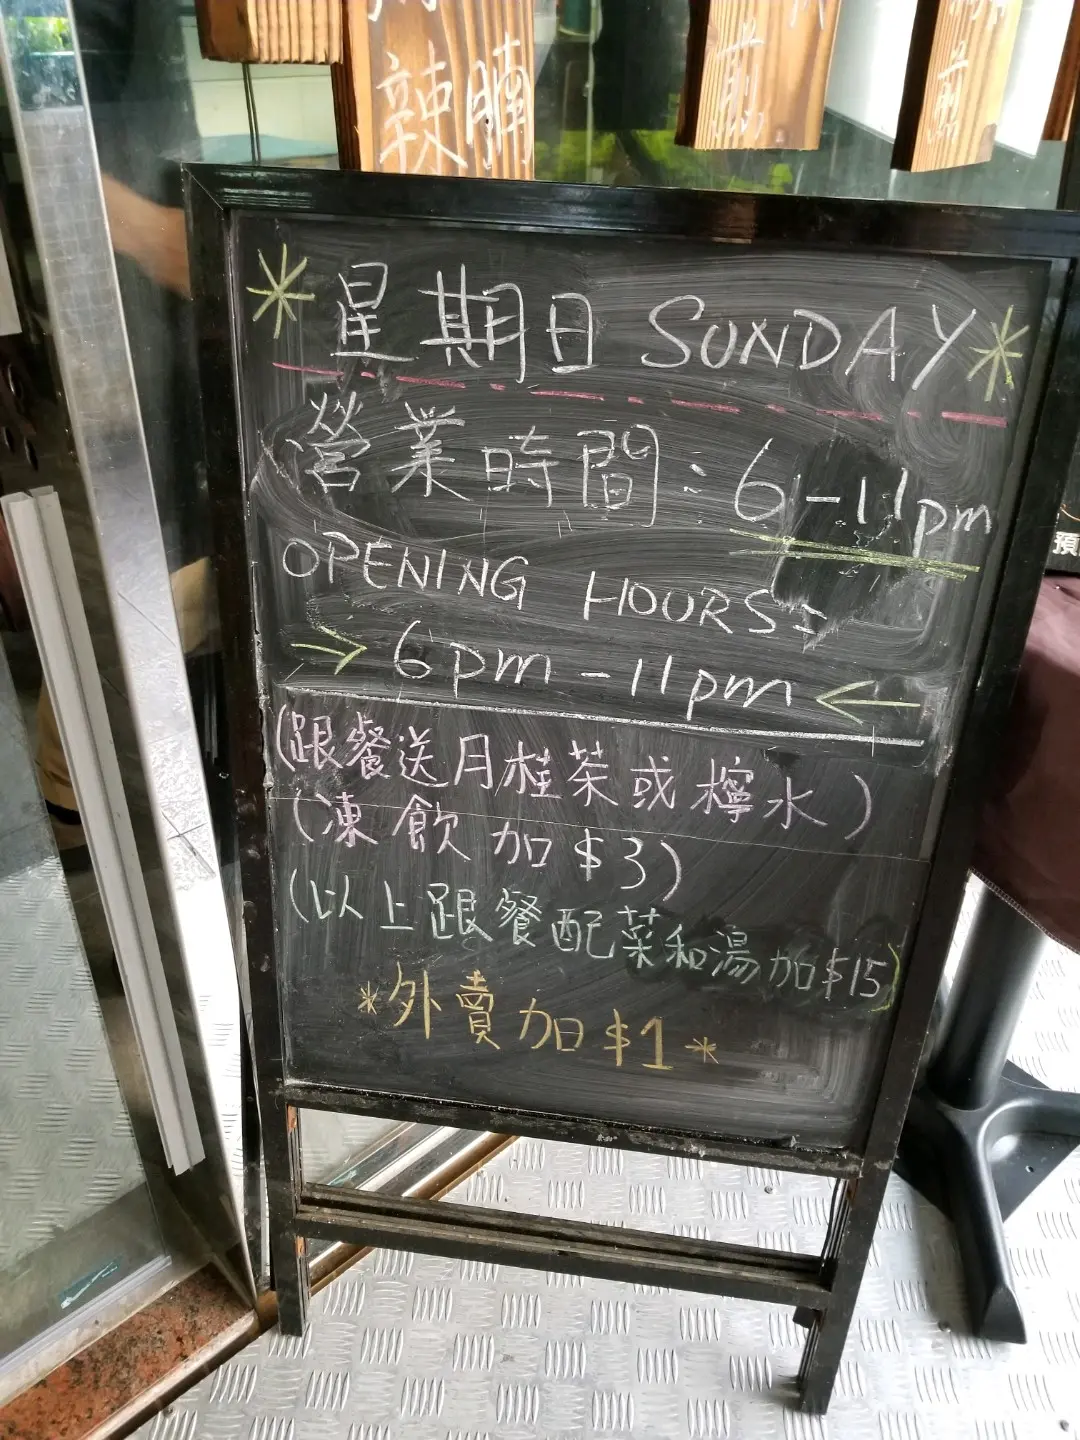 辣腩
煎
煎
*星期日 SUNDAY*
營業時間: 6-11pm
OPENING HOURS:
→ 6pm - 11pm ←
(跟餐送月桂茶或檸水)
(凍飲加$3)
(以上跟餐配菜和湯加$15)
*外賣加$1*
預